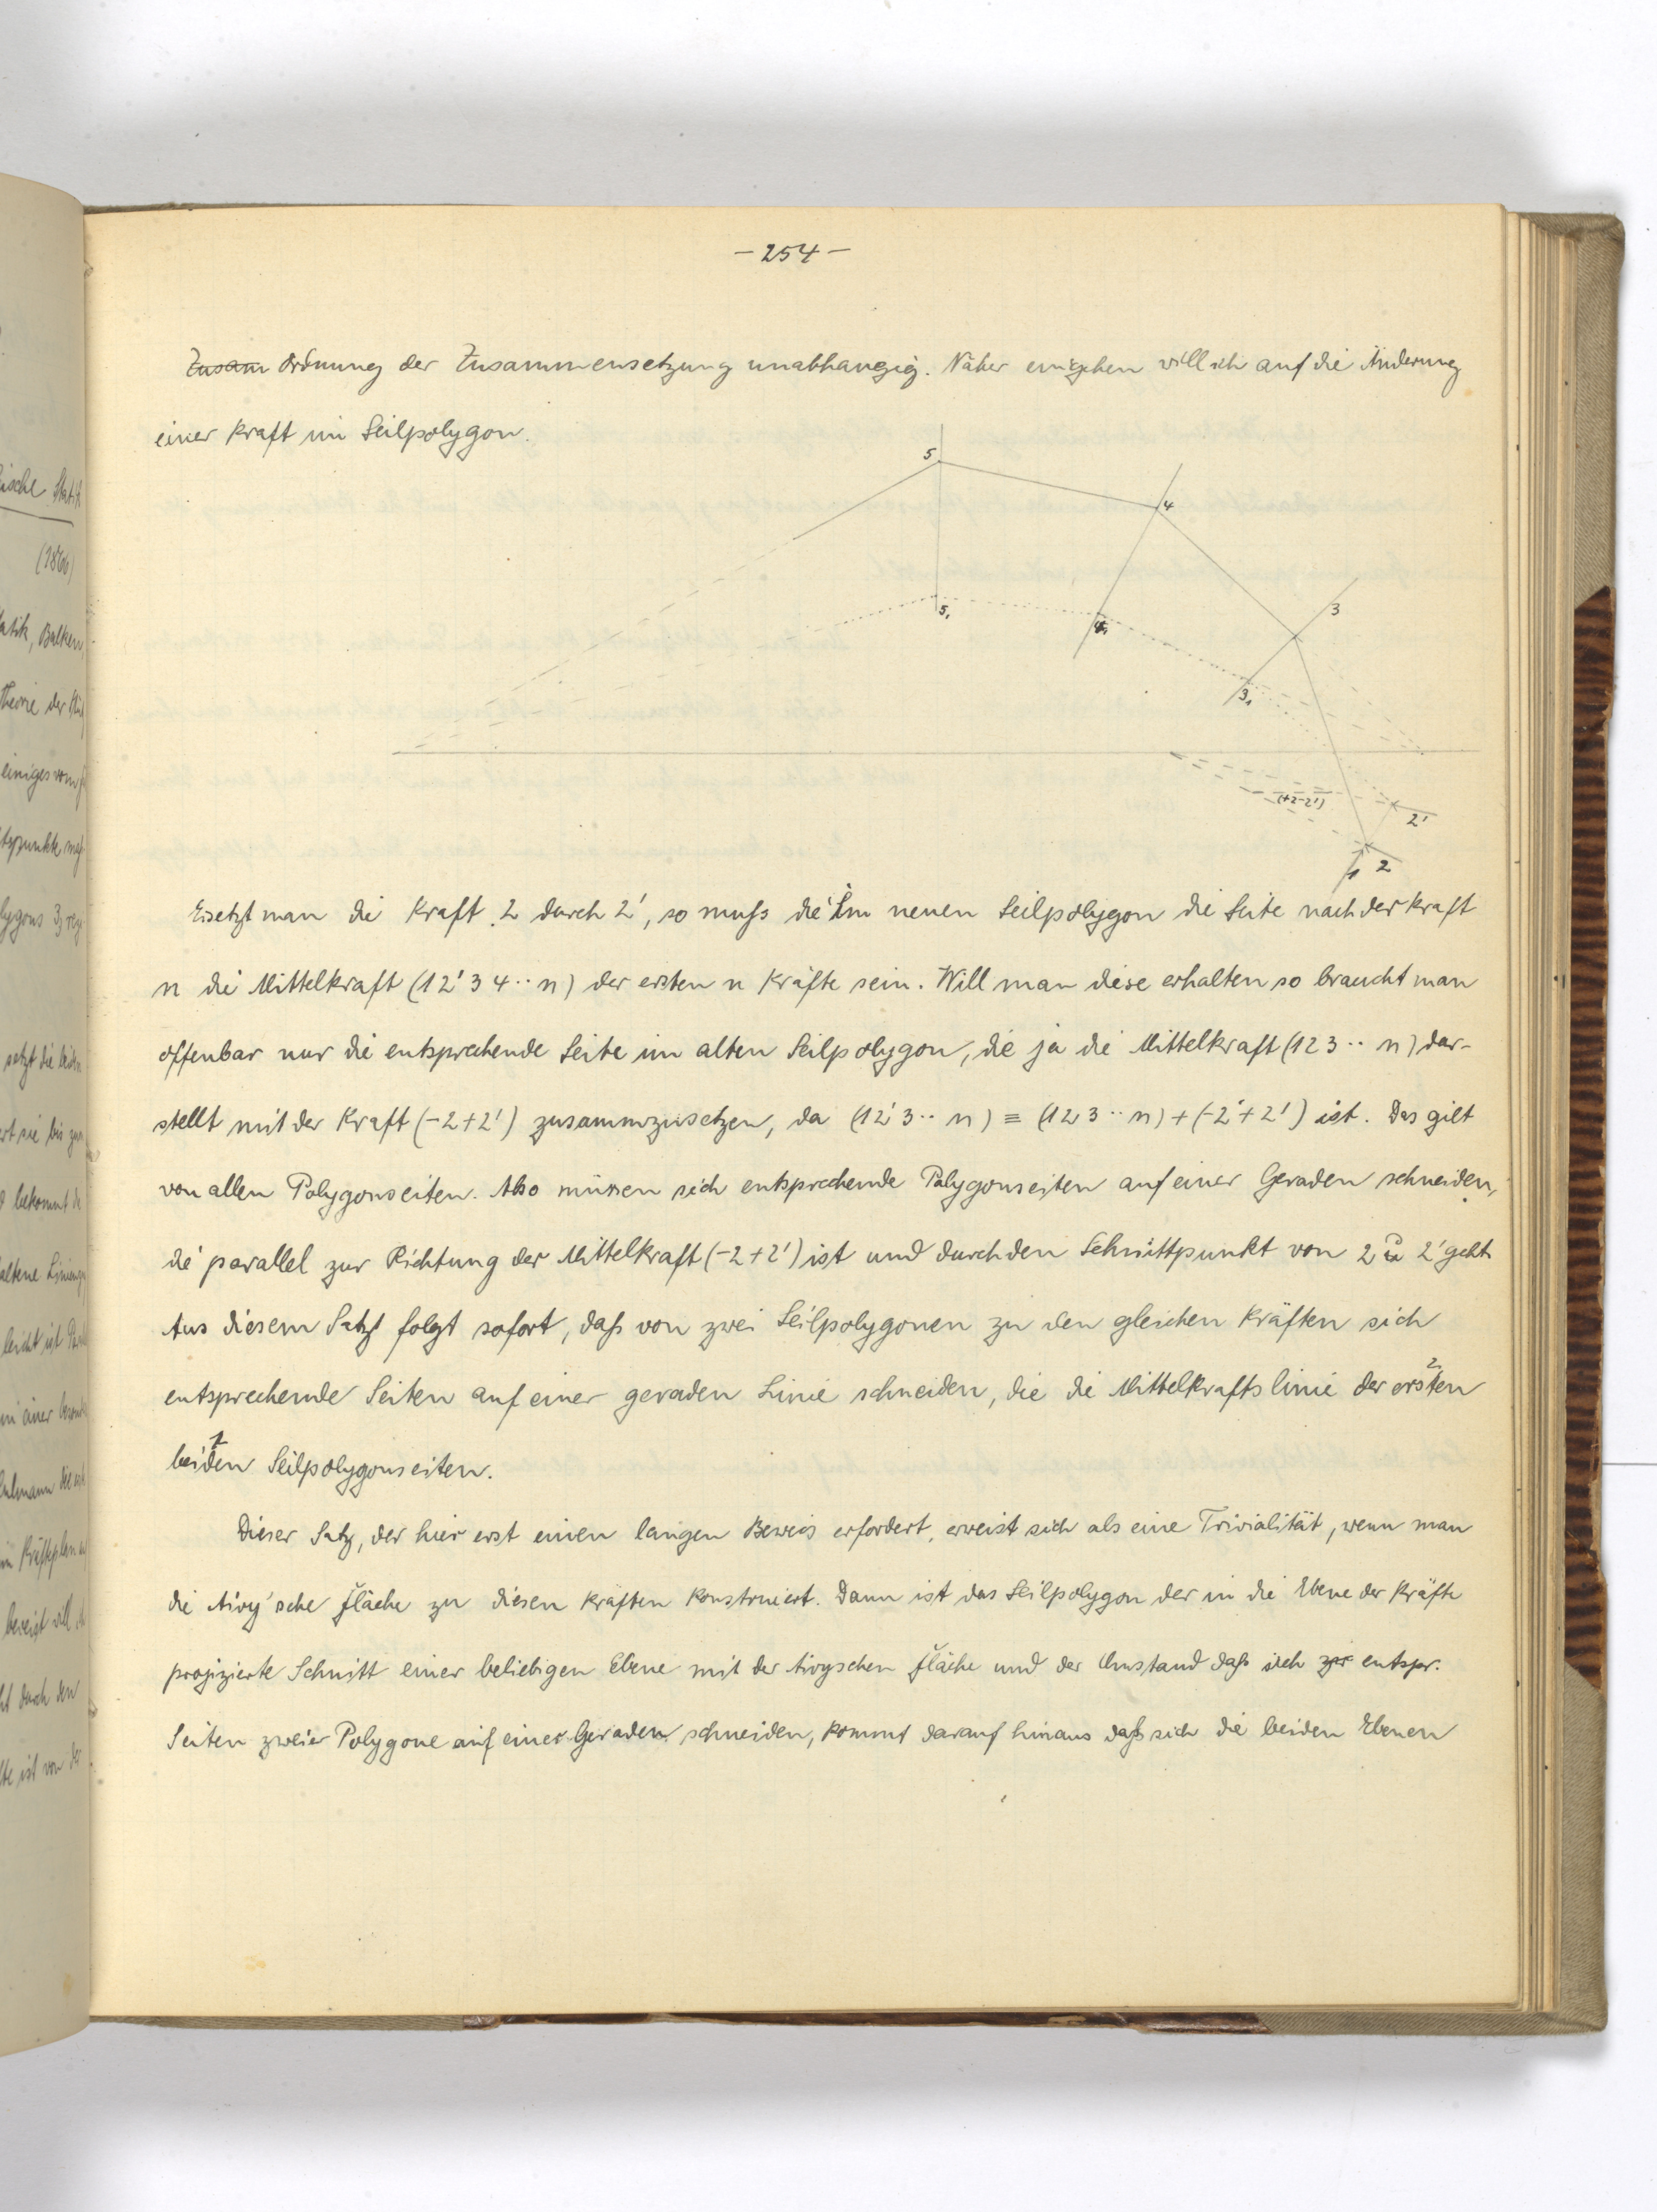 - 254 -
Zusam Ordnung der Zusammensetzung unabhangig. Näher eingehen will ich auf die Änderung
einer Kraft im Seilpolygon.
5
4
3
5₁
4₁
3₁
(+2-2')
2'
2
1
Ersetzt man die Kraft 2 durch 2', so muss die im neuen Seilpolygon die Seite nach der Kraft
n die Mittelkraft (12'34..n) der ersten n Kräfte sein. Will man diese erhalten so braucht man
offenbar nur die entsprechende Seite im alten Seilpolygon, die ja die Mittelkraft (123..n) dar-
stellt mit der Kraft (-2+2') zusammzusetzen, da (12'3..n) ≡ (123..n) + (-2+2') ist. Das gilt
von allen Polygonseiten. Also müssen sich entsprechende Polygonseiten auf einer Geraden schneiden,
die parallel zur Richtung der Mittelkraft (-2+2') ist und durch den Schnittpunkt von 2 u 2' geht
Aus diesem Satz folgt sofort, dass von zwei Seilpolygonen zu den gleichen Kräften sich
entsprechende Seiten auf einer geraden Linie schneiden, die die Mittelkraftslinie der ersten 2
beiden 1 Seilpolygonseiten.
Dieser Satz, der hier erst einen langen Beweis erfordert, erweist sich als eine Trivialität, wenn man
die Airy'sche Fläche zu diesen Kräften konstruiert. Dann ist das Seilpolygon der in die Ebene der Kräfte
projizierte Schnitt einer beliebigen Ebene mit der Airyschen Fläche und der Umstand dass sich entspr.
Seiten zweier Polygone auf einer Geraden schneiden, kommt darauf hinaus dass sich die beiden Ebenen